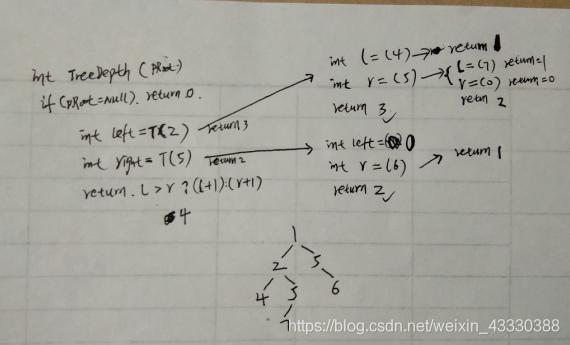 int TreeDepth (pRoot)
if (pRoot=Null). return 0.
int left = T(2) return 3
int right = T(5) return 2
return. l > r ? (l+1):(r+1)
4
int l = (4) → return 1
int r = (5) → { l = (7) return=1
r = (0) return=0
retun 2
return 3 ✓
int left= 0
int r = (6) return 1
return 2 ✓
1
2 5
4 5 6
7
https://blog.csdn.net/weixin_43330388